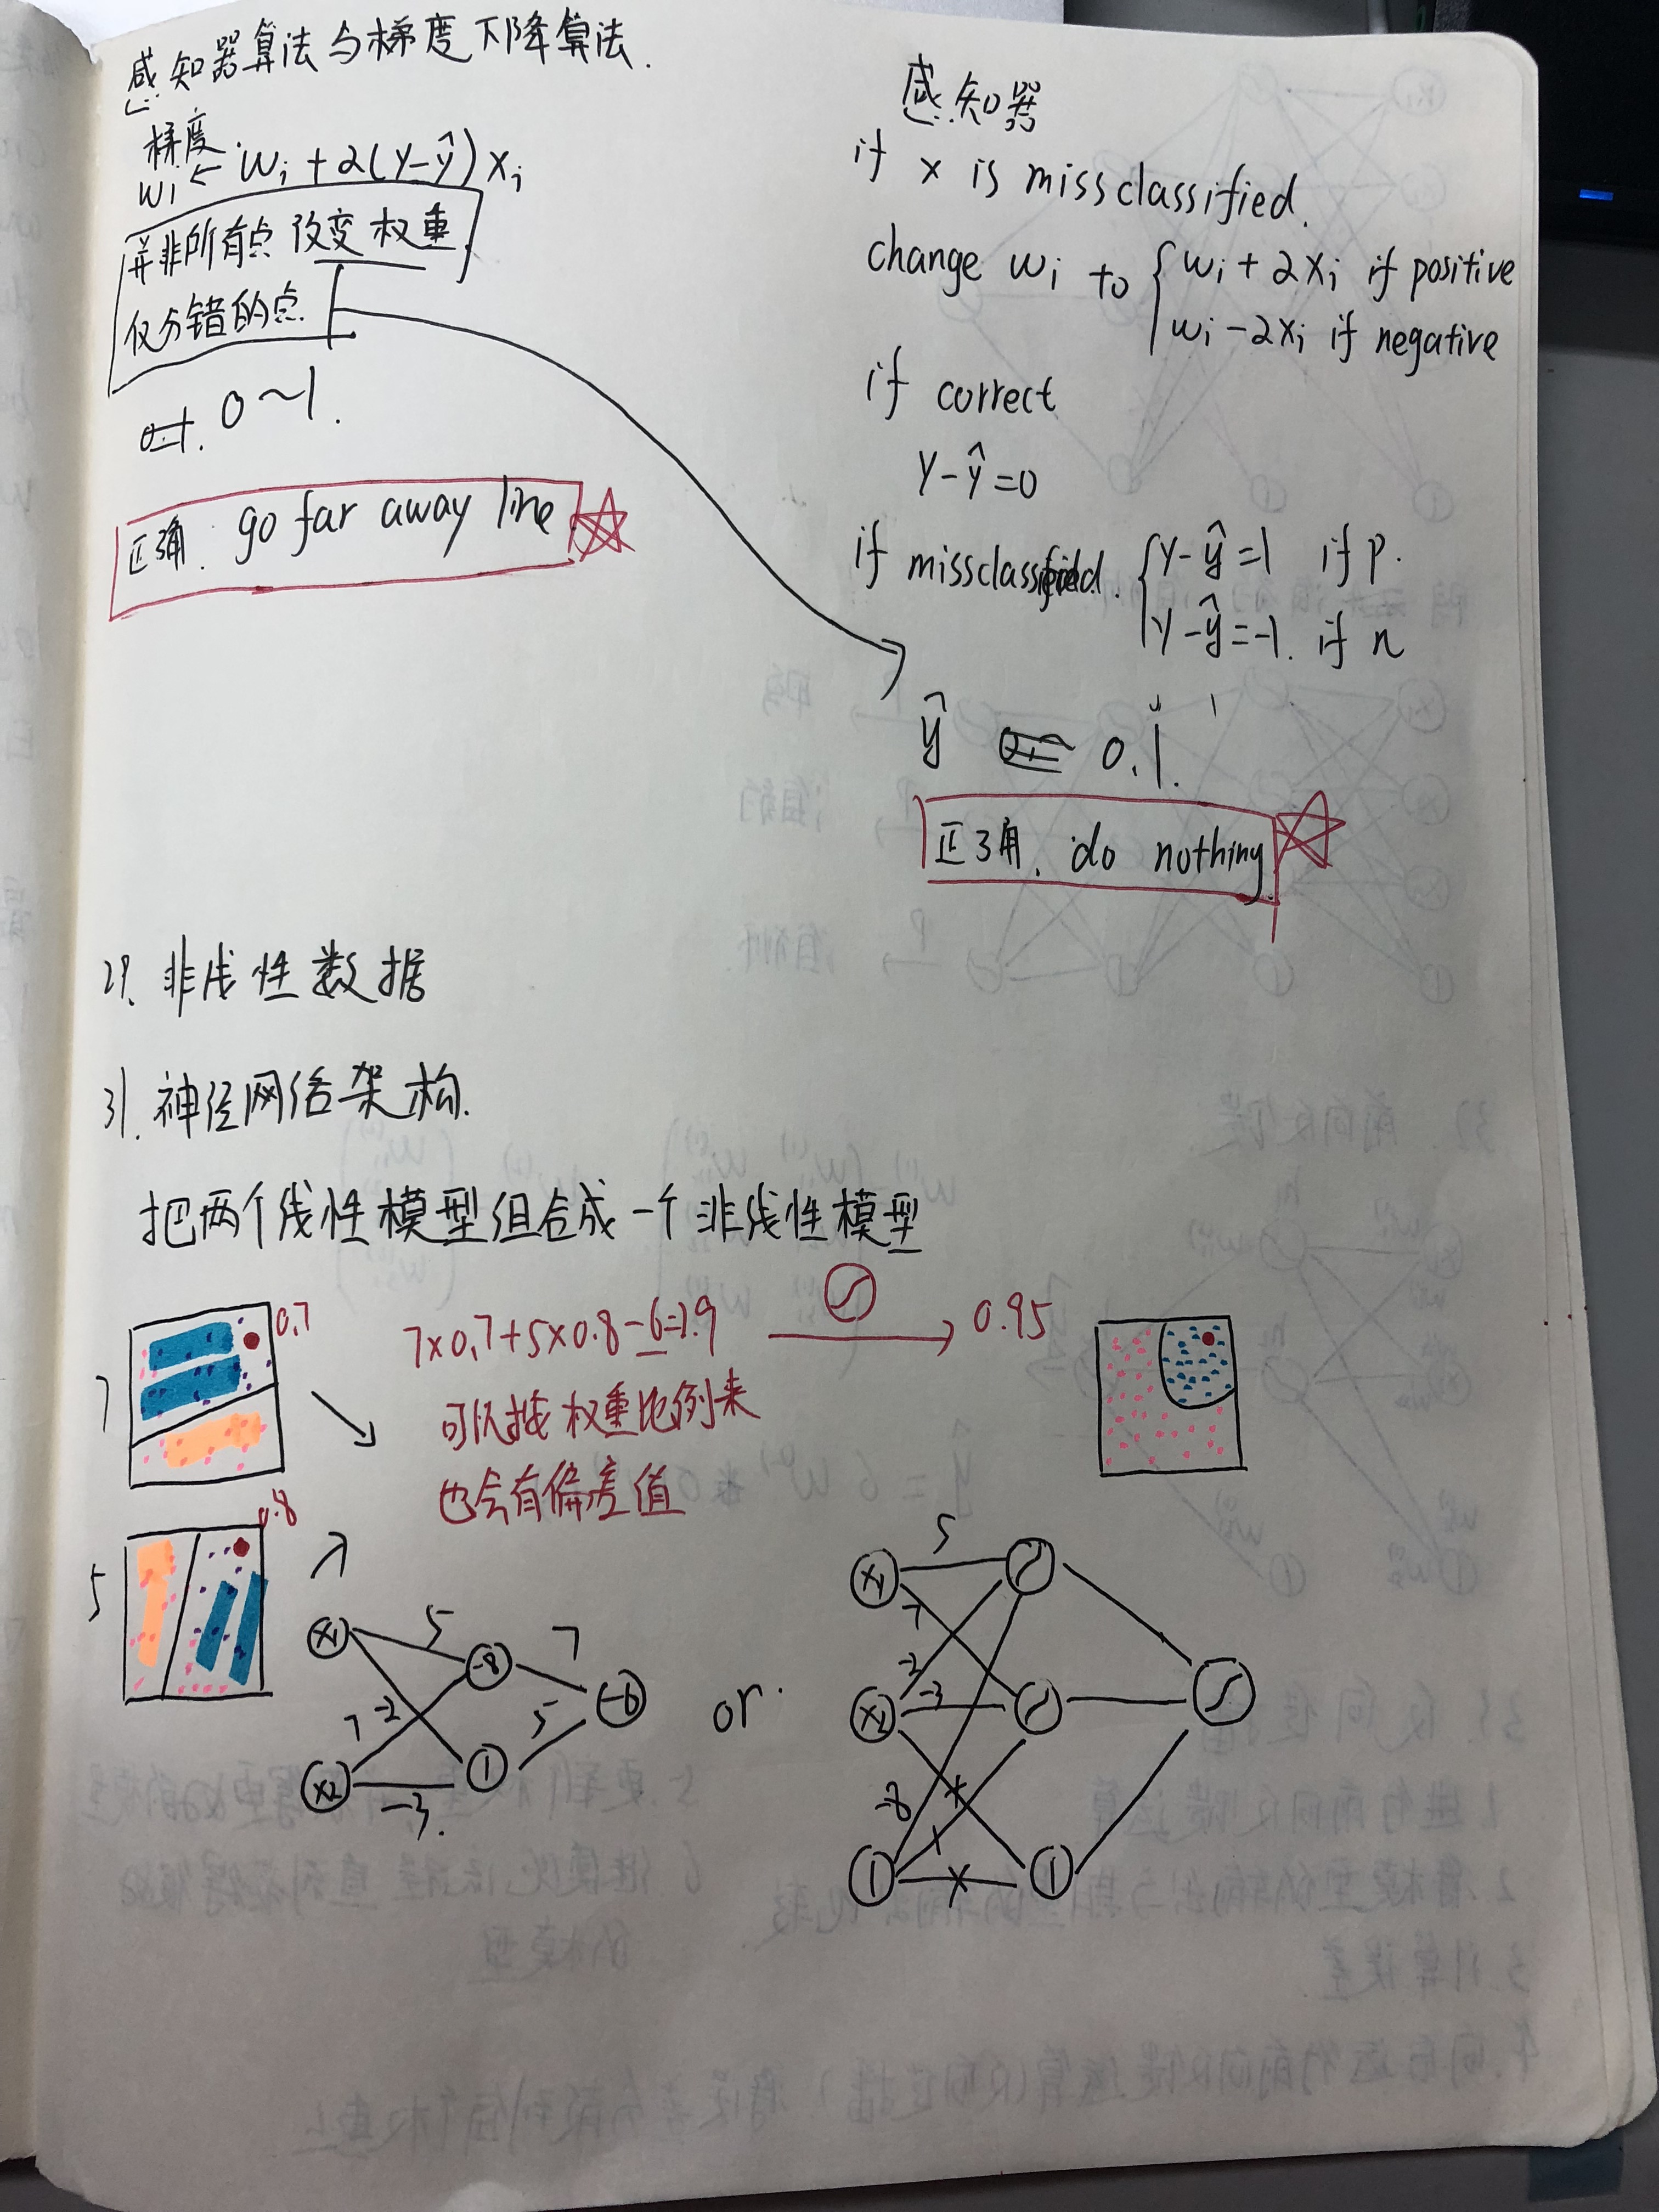 感知器算法与梯度下降算法.
梯度.
wi ← wi + α(y-ŷ)xi
并非所有点 改变 权重
仅分错的点.
0~1.
正确. go far away line
感知器
if x is missclassified.
change wi to { wi + αxi if positive
wi - αxi if negative
if correct
y-ŷ=0
if missclassified. { y-ŷ=1 if p.
y-ŷ=-1. if n
ŷ 0.1.
正确. do nothing
29. 非线性数据
31. 神经网络架构.
把两个线性模型组合成一个非线性模型
0.7
7×0.7+5×0.8-6=2.9 → 0.95
7
可以按权重比例来
也会有偏差值
0.8
5
x1 5 -8 7
7 -2 5 -6
x2 -3. 1
or.
x1 5
7
-2
x2 -3
-8
1 1